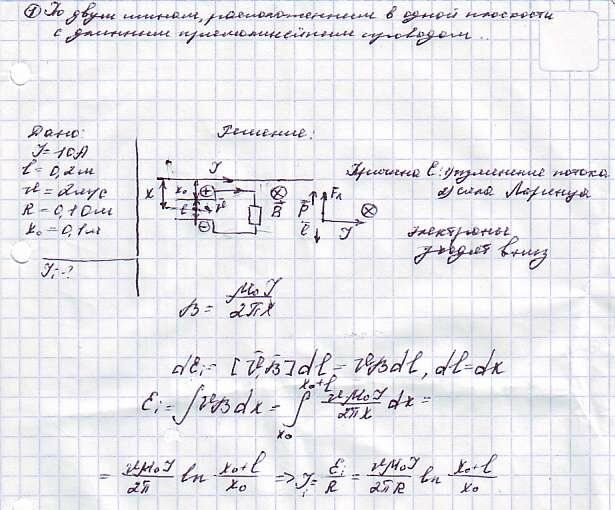 ① По двум шинам, расположенным в одной плоскости
с длинным прямолинейным проводом..
Дано:
J = 10А
l = 0,2м
v = 2м/с
R = 0,1Ом
x₀ = 0,1м
Jᵢ - ?
Решение:
J
x x₀ l v B
+
−
F_л
P
e
J
Причина Ɛ: 1) изменение потока
2) сила Лоренца
электроны
уходят вниз
B = μ₀J / 2πx
dƐᵢ = [v̄, B̄]dl = vBdl, dl = dx
Ɛᵢ = ∫vBdx = ∫_{x₀}^{x₀+l} vμ₀J / 2πx dx =
= vμ₀J / 2π ln (x₀+l) / x₀ => Jᵢ = Ɛᵢ / R = vμ₀J / 2πR ln (x₀+l) / x₀